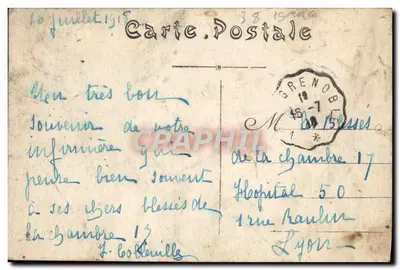 10 juillet 1918
38 Isère
Carte Postale
GRENOBLE
Un très bon
souvenir de votre
infirmière qui
pense bien souvent
à ses chers blessés de
la chambre 17
M les Blessés
de la chambre 17
Hopital 50
1 rue Raulin
Lyon
CPARAMA.COM